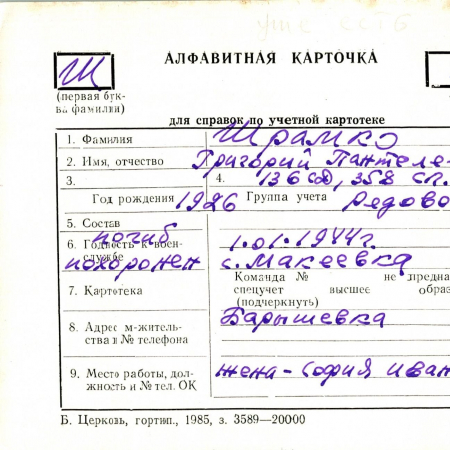 уже есть
АЛФАВИТНАЯ КАРТОЧКА
Ш
(первая бук-
ва фамилии)
для справок по учетной картотеке
1. Фамилия Шрамко
2. Имя, отчество Григорий Пантеле
3. 4. 136 сд, 358 сп.
Год рождения 1926 Группа учета Рядово
5. Состав
погиб
6. Годность к воен- 1.01.1944г.
службе
похоронен с. Макеевка
7. Картотека Команда № не предна
спецучет высшее обра
(подчеркнуть)
8. Адрес м-житель- Барышевка
ства и № телефона
9. Место работы, дол- жена - София Иван
жность и № тел. ОК
Б. Церковь, гортип., 1985, з. 3589—20000